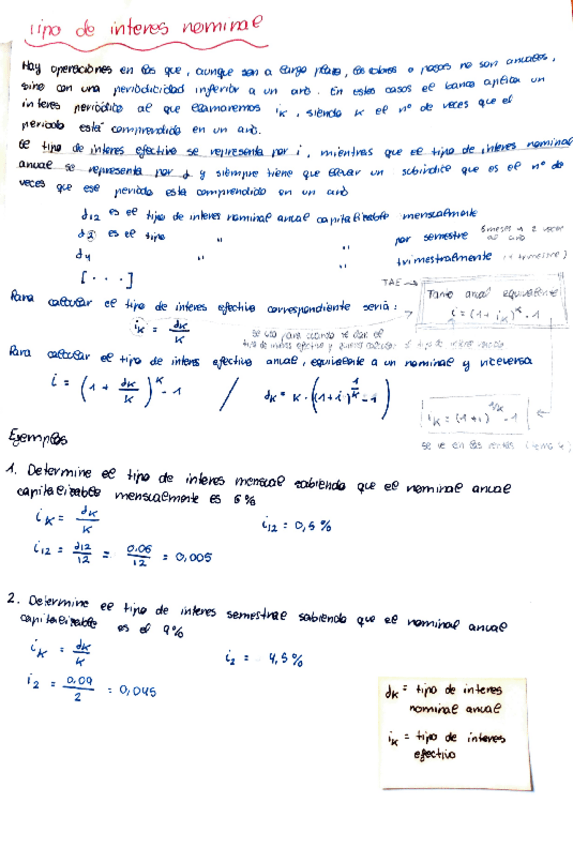 Tipo de interes nominal
Hay operaciones en los que, aunque son a largo plazo, los cobros o pagos no son anuales,
sino con una periodicidad inferior a un año. En estos casos el banco aplica un
interes periódico al que llamaremos iK, siendo K el nº de veces que el
periodo está comprendido en un año.
El tipo de interes efectivo se representa por i, mientras que el tipo de interes nominal
anual se representa por d y siempre tiene que llevar un subíndice que es el nº de
veces que ese periodo está comprendido en un año
d12 es el tipo de interes nominal anual capitalizable mensualmente
d2 es el tipo " " por semestre 6 meses → 2 veces al año
d4 " " trimestralmente (1 trimestre)
[...]
TAE → Tanto anual equivalente
i = (1 + iK)^K - 1
Para calcular el tipo de interes efectivo correspondiente seria:
iK = dK/K
se usa para cuando te dan el
Para calcular el tipo de interes efectivo anual, equivalente a un nominal y viceversa
i = (1 + dK/K)^K - 1 / dK = K · ((1+i)^1/K - 1)
iK = (1+i)^1/K - 1
se ve en las rentas (tema 4)
Ejemplos
1. Determine el tipo de interes mensual sabiendo que el nominal anual
capitalizable mensualmente es 6%
iK = dK/K i12 = 0,5%
i12 = d12/12 = 0.06/12 = 0,005
2. Determine el tipo de interes semestral sabiendo que el nominal anual
capitalizable es el 9%
iK = dK/K i2 = 4,5%
i2 = 0,09/2 = 0,045
dK = tipo de interes
nominal anual
iK = tipo de interes
efectivo